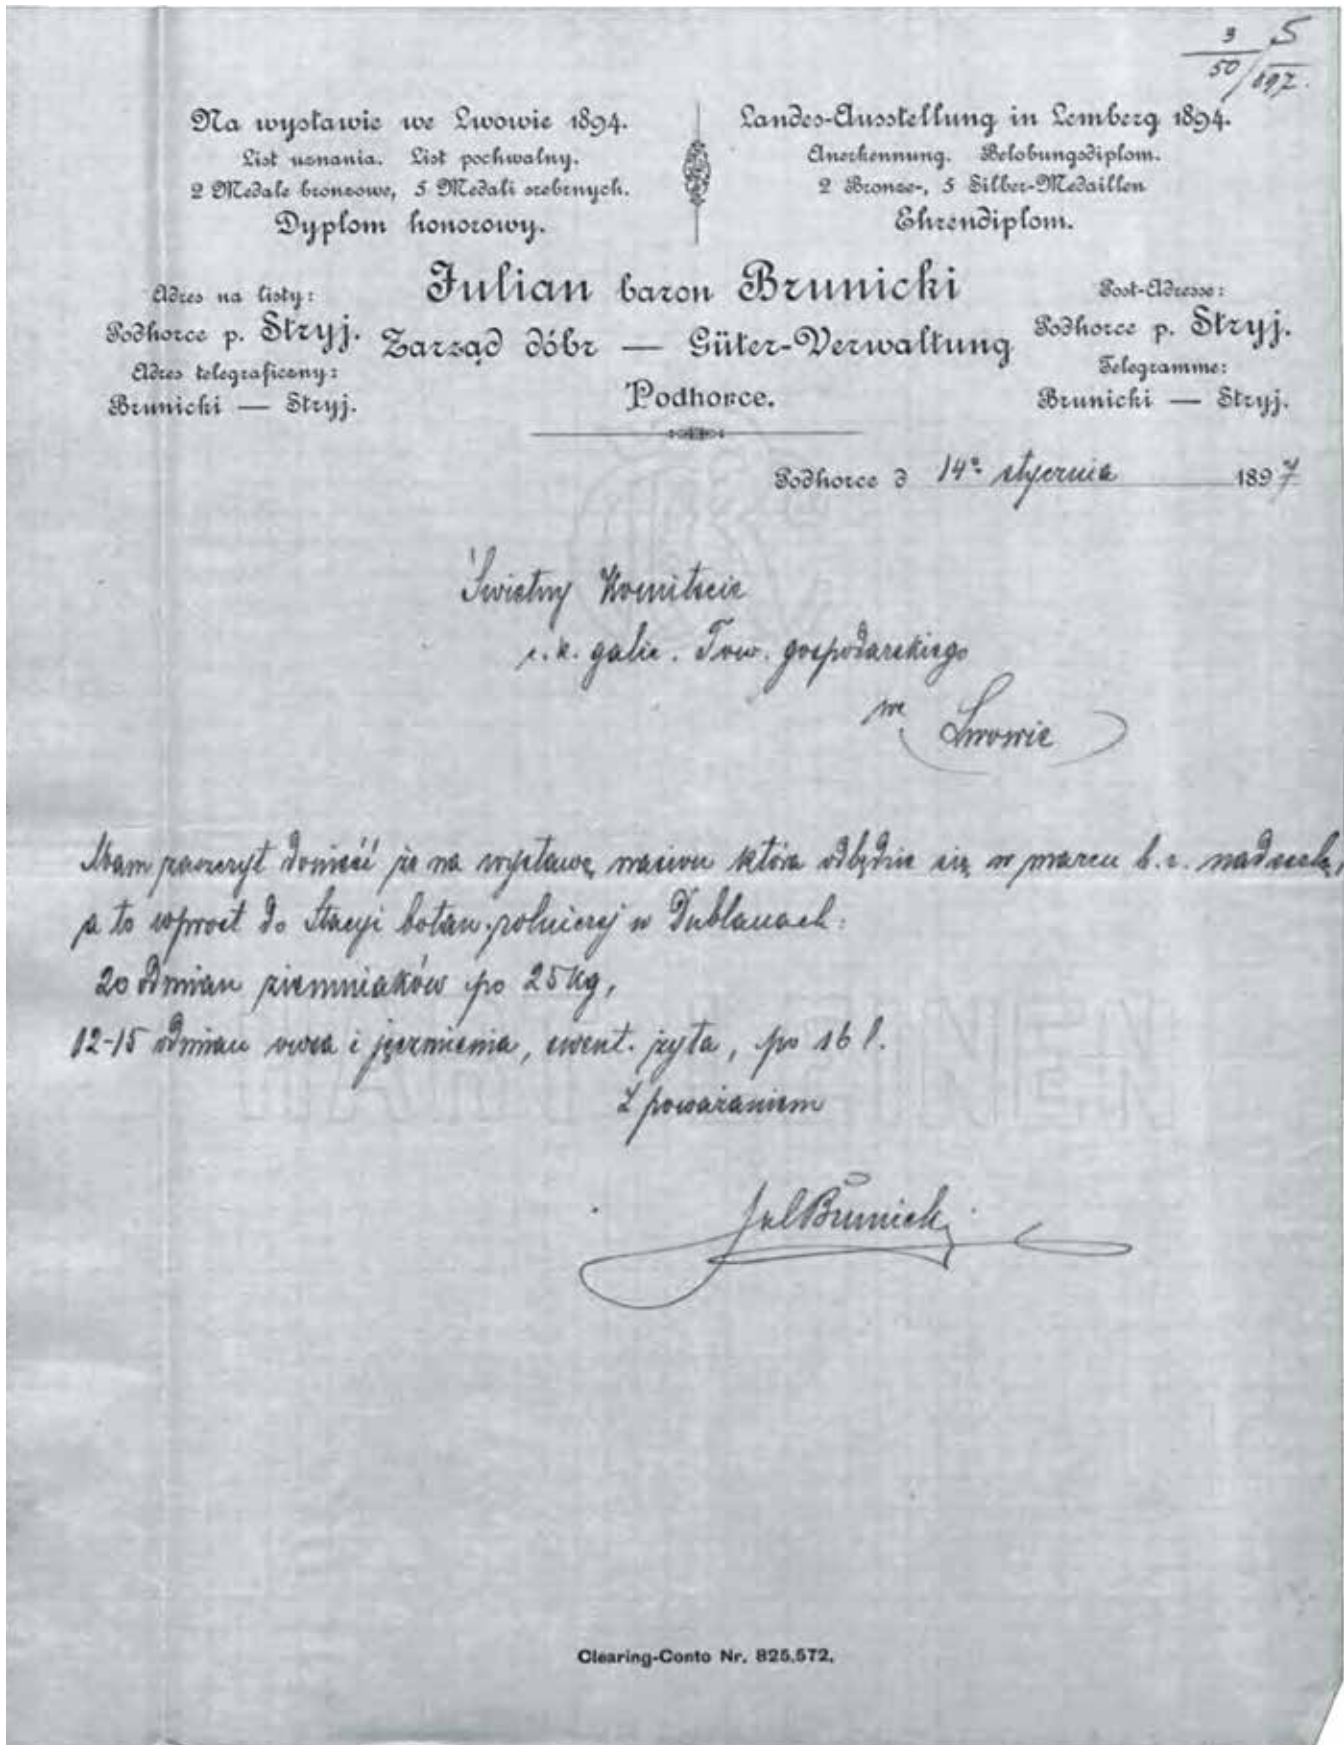 3 / 50 / 5 / 897.
Na wystawie we Lwowie 1894.
List uznania. List pochwalny.
2 Medale bronzowe, 5 Medali srebrnych.
Dyplom honorowy.
Landes-Ausstellung in Lemberg 1894.
Anerkennung. Belobungsdiplom.
2 Bronze-, 5 Silber-Medaillen
Ehrendiplom.
Julian baron Brunicki
Zarząd dóbr — Güter-Verwaltung
Podhorce.
Adres na listy:
Podhorce p. Stryj.
Adres telegraficzny:
Brunicki — Stryj.
Post-Adresse:
Podhorce p. Stryj.
Telegramme:
Brunicki — Stryj.
Podhorce d 14º stycznia 1897
Świetny Komitecie
c. k. galic. Tow. gospodarskiego
we Lwowie
Mam zaszczyt donieść że na wystawę nasion która odbędzie się w marcu b. r. nadeszlę,
a to wprost do Stacyi botan. rolniczej w Dublanach:
20 odmian ziemniaków po 25 Kg,
12-15 odmian owsa i jęczmienia, ewent. żyta, po 16 l.
Z poważaniem
Jul Brunicki
HANF LEINEN
Clearing-Conto Nr. 825.572.